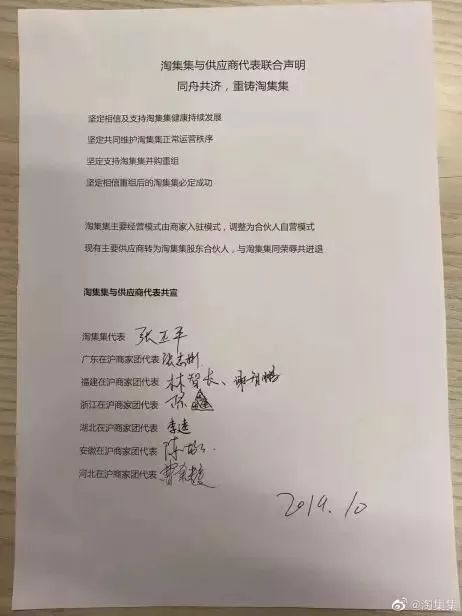 淘集集与供应商代表联合声明
同舟共济，重铸淘集集
坚定相信及支持淘集集健康持续发展
坚定共同维护淘集集正常运营秩序
坚定支持淘集集并购重组
坚定相信重组后的淘集集必定成功
淘集集主要经营模式由商家入驻模式，调整为合伙人自营模式
现有主要供应商转为淘集集股东合伙人，与淘集集同荣辱共进退
淘集集与供应商代表共宣
淘集集代表 张正平
广东在沪商家团代表 张志彬
福建在沪商家团代表 林智长、谢
浙江在沪商家团代表
湖北在沪商家团代表 李逵
安徽在沪商家团代表 陈
河北在沪商家团代表 曹
2019.10
@淘集集